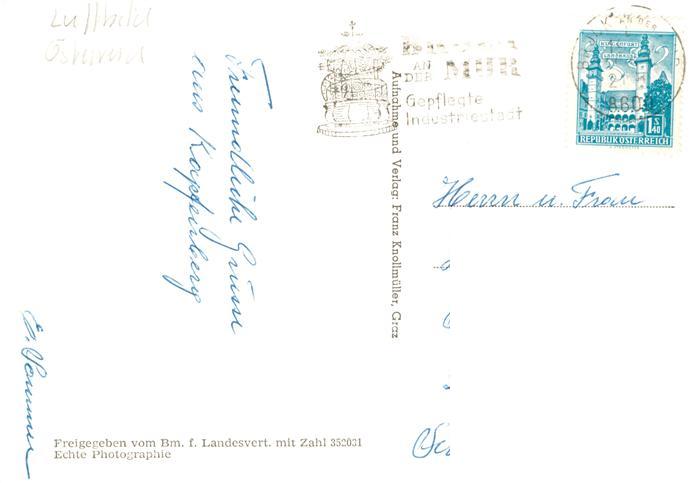 Luftbild
Österreich
Freundliche Grüsse
aus Kapfenberg
AN
DER MUR
Gepflegte
Industriestadt
8600
KLAGENFURT
LANDHAUS
1.40
REPUBLIK ÖSTERREICH
Aufnahme und Verlag: Franz Knollmüller, Graz
Herrn u. Frau
Freigegeben vom Bm. f. Landesvert. mit Zahl 352031
Echte Photographie